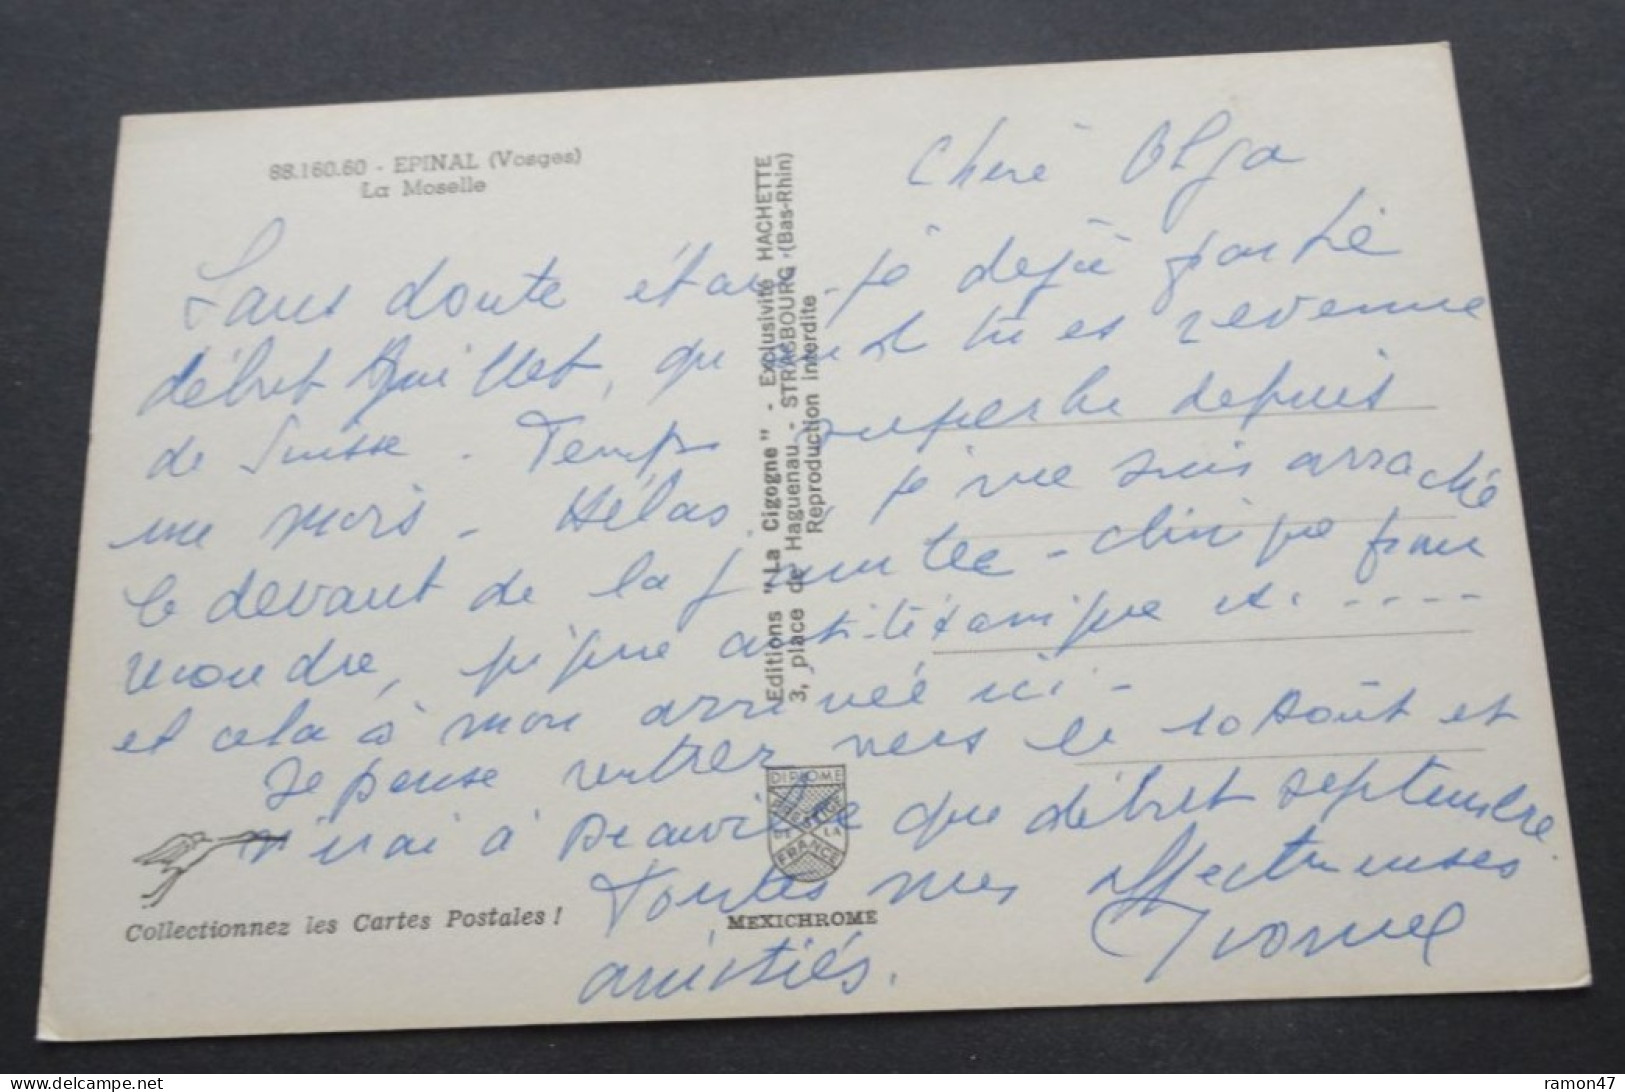 88.160.60 - EPINAL (Vosges)
La Moselle
Chère Olga
Sans doute étais-je déjà partie
début Juillet, quand tu es revenue
de Suisse. Temps superbe depuis
un mois - Hélas, je me suis arraché
le devant de la jambe - clinique pour
, piqure anti-tétanique et. - - - -
et cela à mon arrivée ici -
Je pense rentrer vers le 10 Août et
n'irai à Deauville que début septembre.
Toutes mes affectueuses
amitiés.
Yvonne
Editions "La Cigogne" - Exclusivité HACHETTE
3, place de Haguenau - STRASBOURG (Bas-Rhin)
Reproduction interdite
DIPLOME
PRESTIGE
DE LA
FRANCE
MEXICHROME
Collectionnez les Cartes Postales !
ramon47